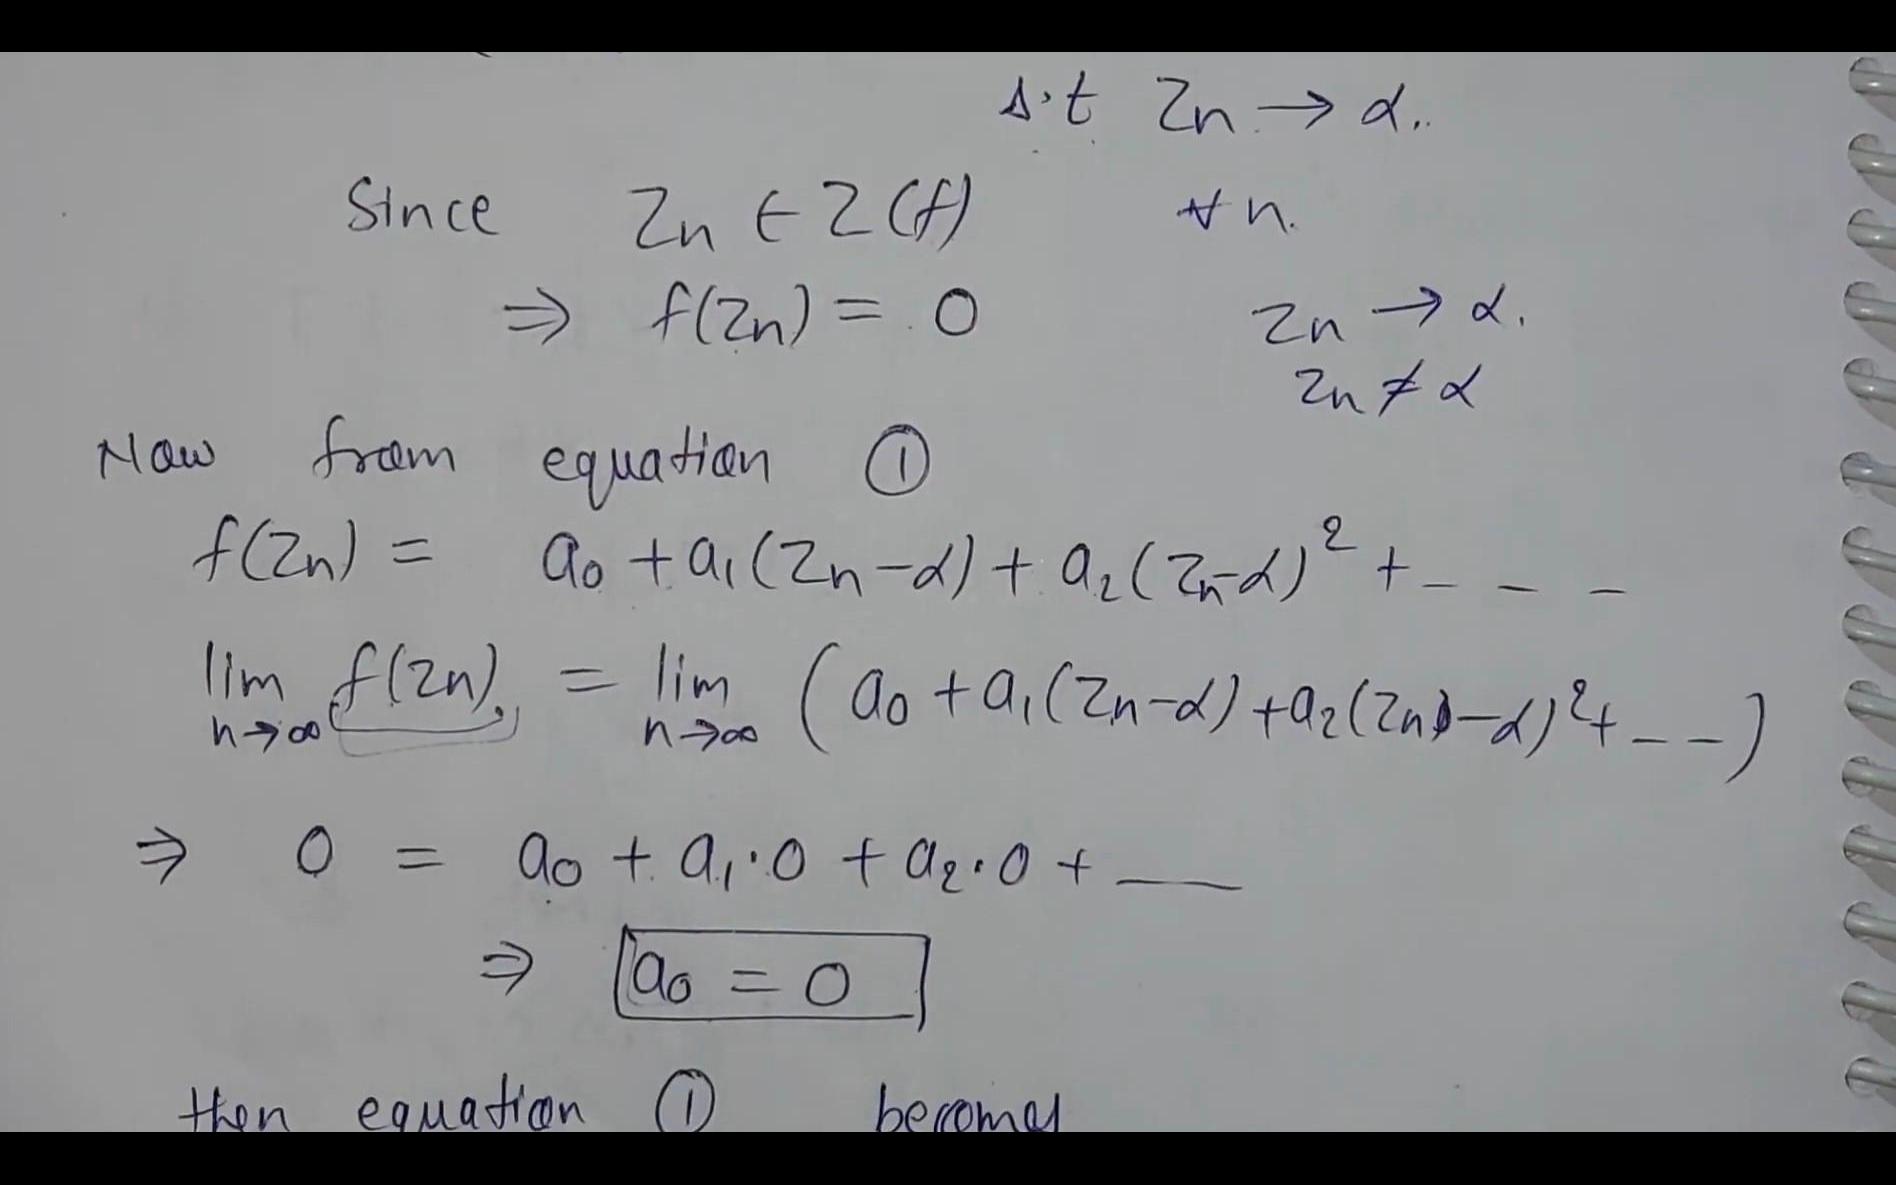 s.t Zn → α..
Since Zn ∈ Z(f) ∀ n.
⇒ f(Zn) = 0 Zn → α.
Zn ≠ α
Now from equation ①
f(Zn) = a₀ + a₁(Zn-α) + a₂(Zn-α)² + - - -
lim n→∞ f(Zn) = lim n→∞ (a₀ + a₁(Zn-α) + a₂(Zn)-α)² + - -)
⇒ 0 = a₀ + a₁·0 + a₂·0 + —
⇒ a₀ = 0
then equation ① becomes